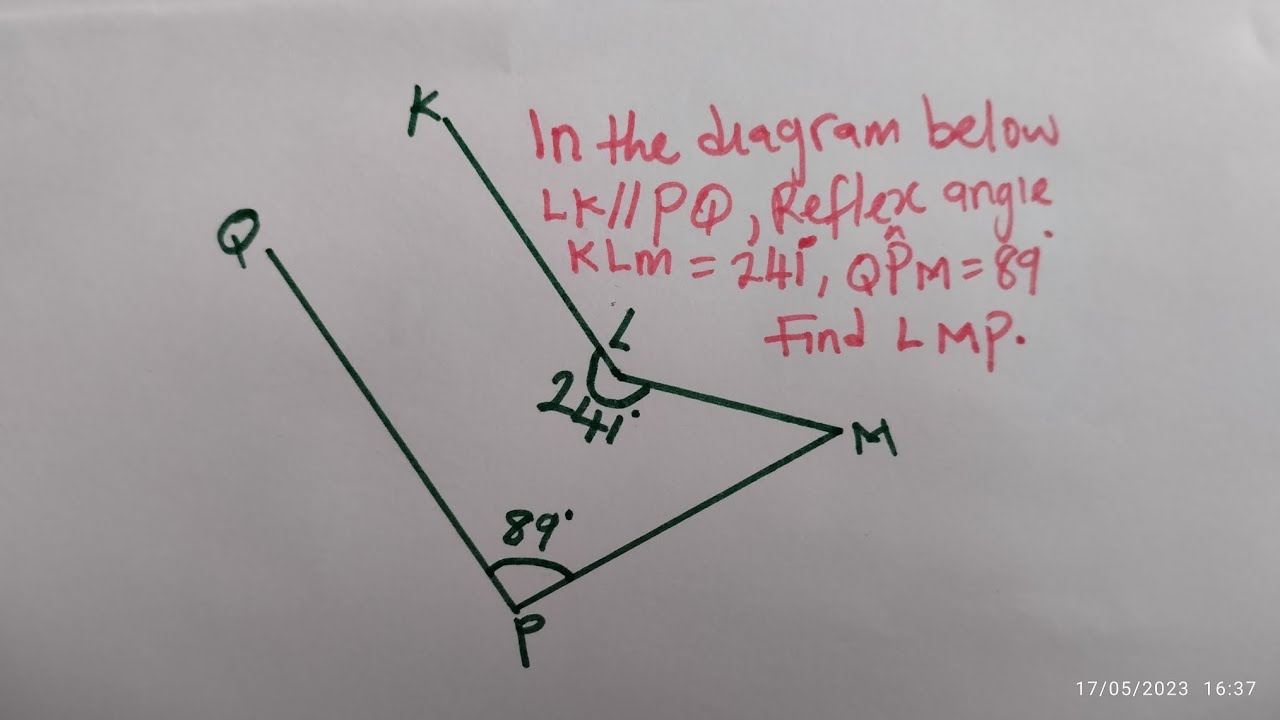 K
In the diagram below
LK//PQ, Reflex angle
KLM = 241°, QP̂M = 89°
Find LMP.
Q
L
241°
M
89°
P
17/05/2023 16:37